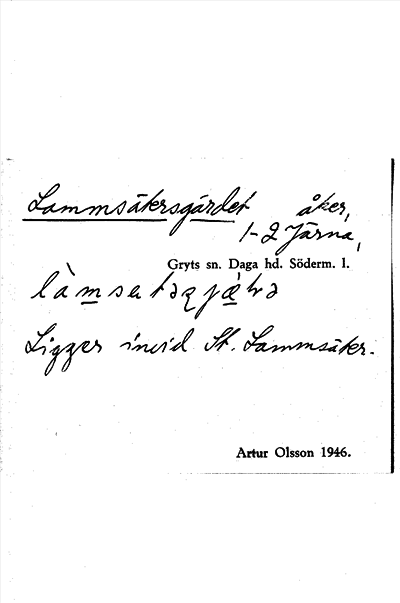 Lammsåkersgärdet åker,
1-2 Järna,
Gryts sn. Daga hd. Söderm. l.
Ligger invid St. Lammsåker.
Artur Olsson 1946.